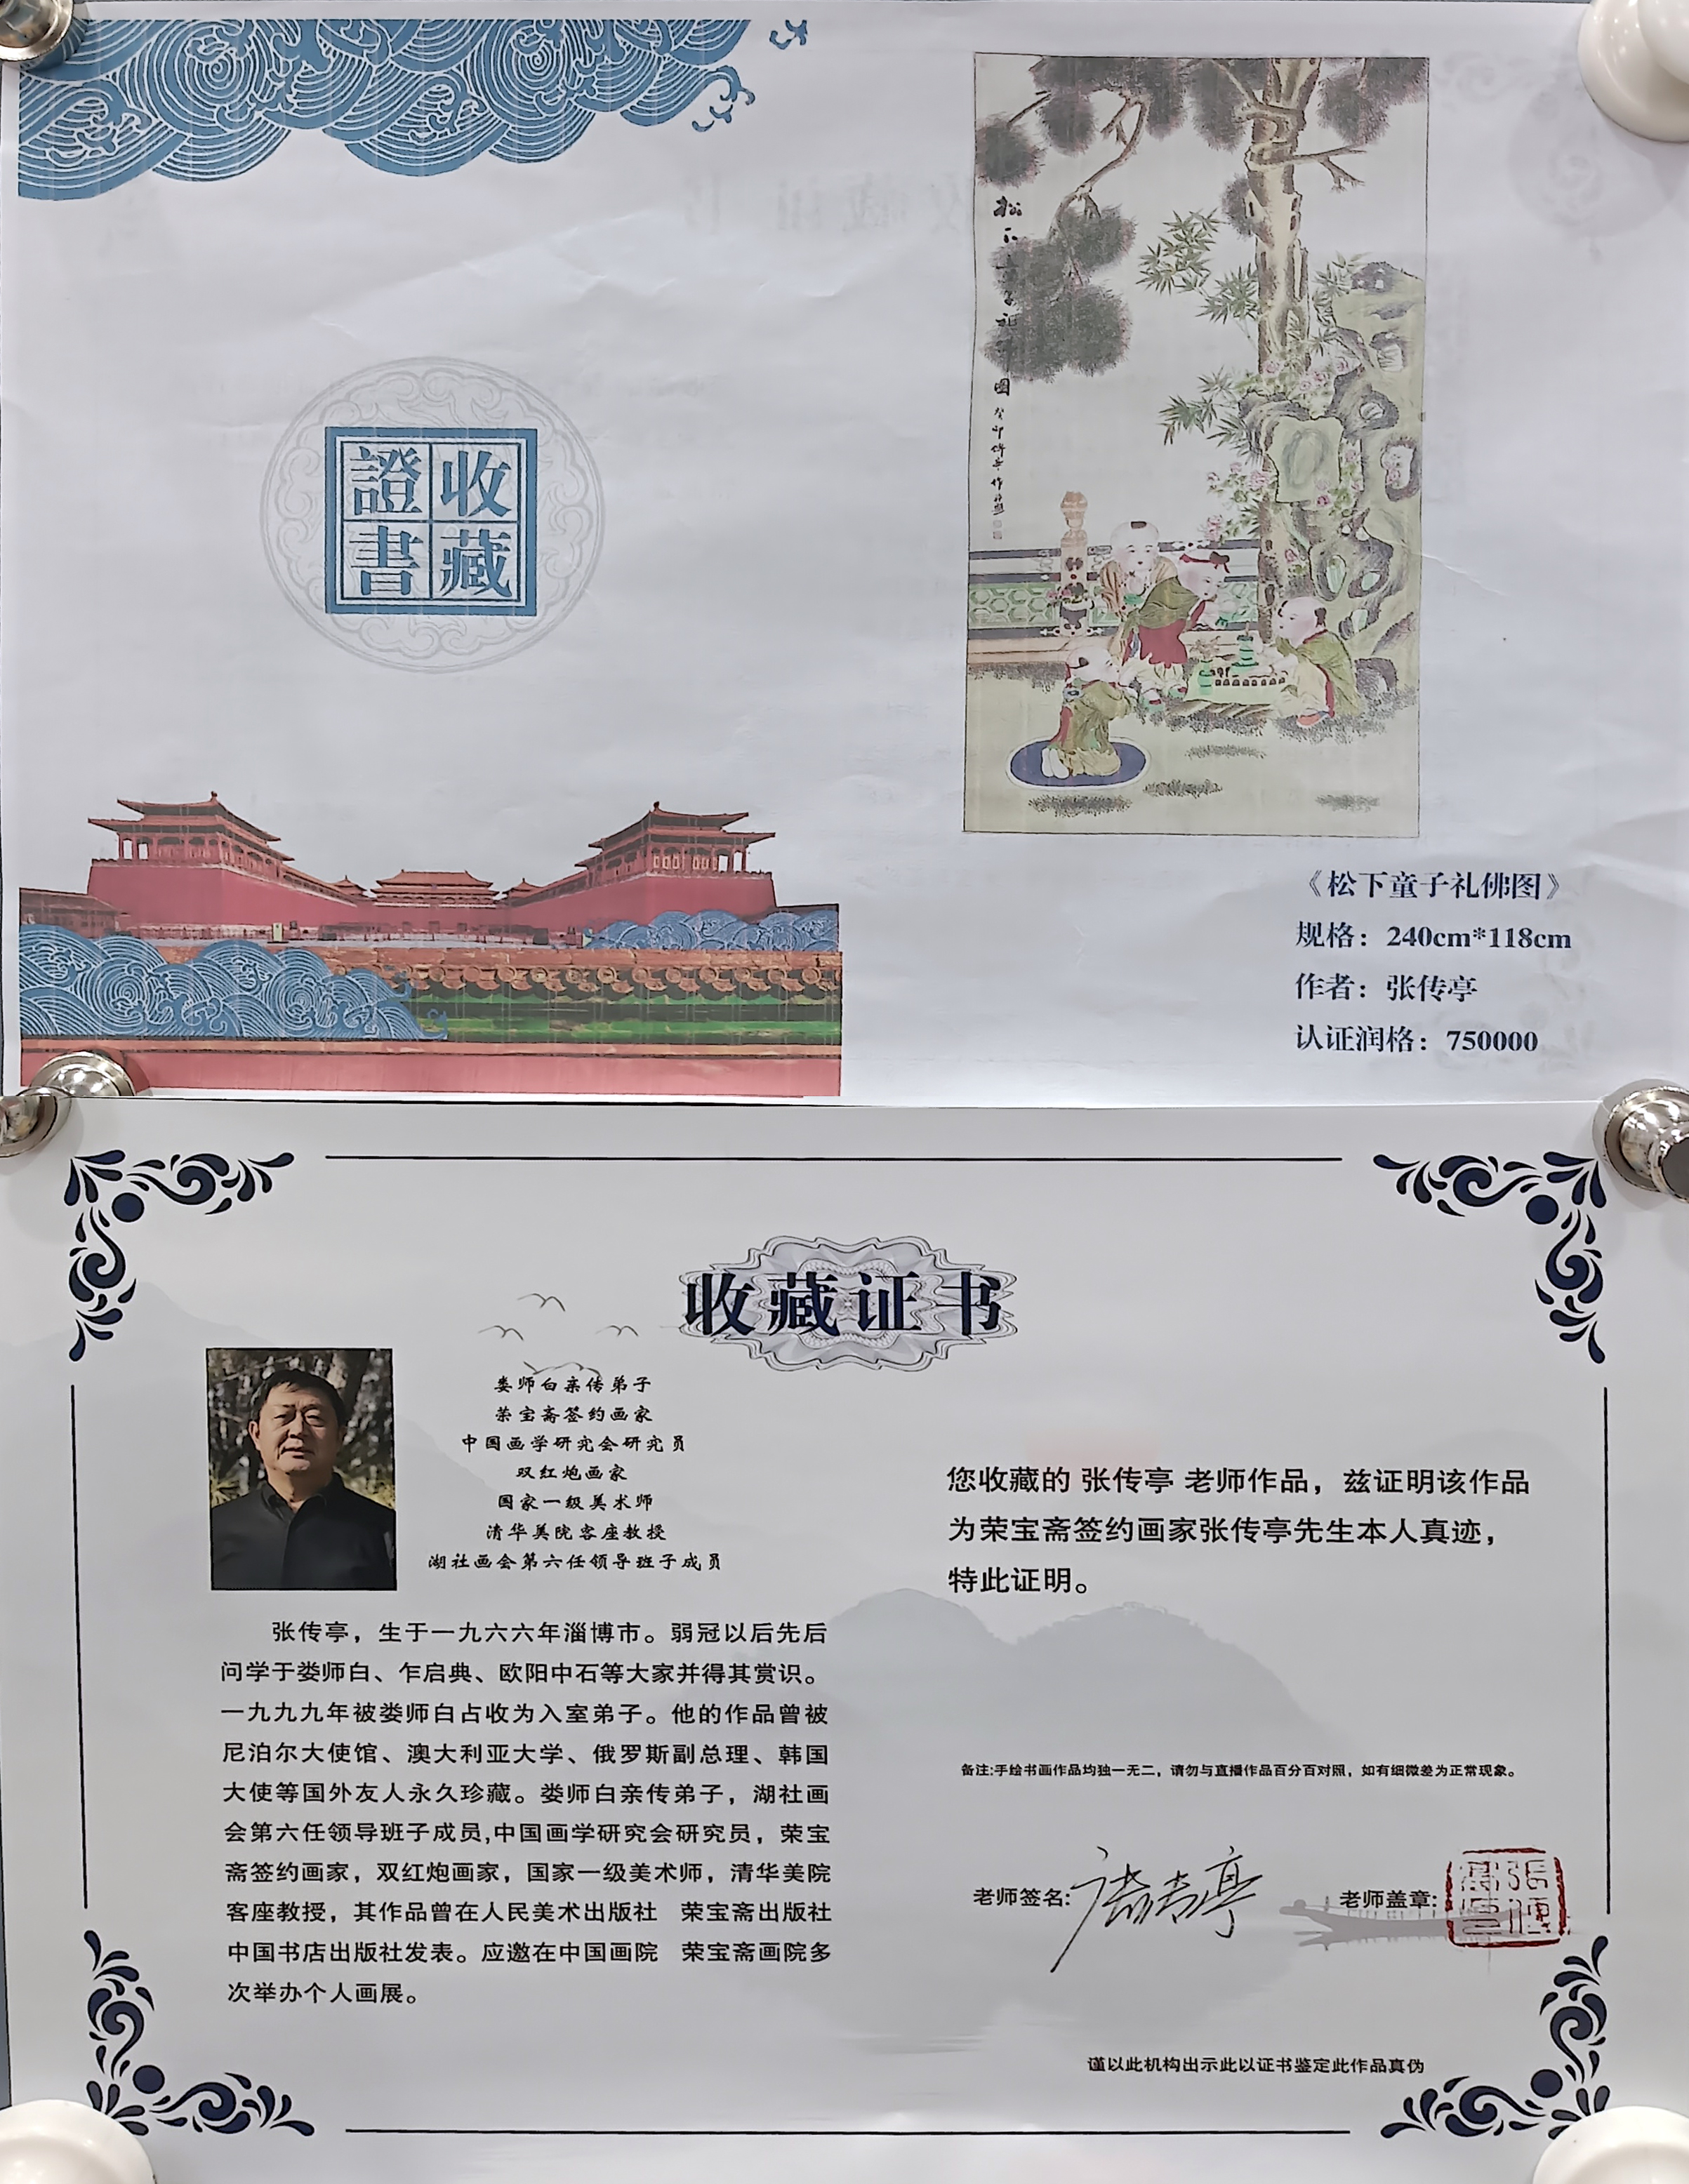 收藏
證書
松下童子礼佛图
癸卯传亭作
《松下童子礼佛图》
规格：240cm*118cm
作者：张传亭
认证润格：750000
收藏证书
娄师白亲传弟子
荣宝斋签约画家
中国画学研究会研究员
双红炮画家
国家一级美术师
清华美院客座教授
湖社画会第六任领导班子成员
张传亭，生于一九六六年淄博市。弱冠以后先后
问学于娄师白、乍启典、欧阳中石等大家并得其赏识。
一九九九年被娄师白占收为入室弟子。他的作品曾被
尼泊尔大使馆、澳大利亚大学、俄罗斯副总理、韩国
大使等国外友人永久珍藏。娄师白亲传弟子，湖社画
会第六任领导班子成员,中国画学研究会研究员，荣宝
斋签约画家，双红炮画家，国家一级美术师，清华美院
客座教授，其作品曾在人民美术出版社　荣宝斋出版社
中国书店出版社发表。应邀在中国画院　荣宝斋画院多
次举办个人画展。
您收藏的 张传亭 老师作品，兹证明该作品
为荣宝斋签约画家张传亭先生本人真迹，
特此证明。
备注:手绘书画作品均独一无二，请勿与直播作品百分百对照，如有细微差为正常现象。
老师签名:
老师盖章:
谨以此机构出示此以证书鉴定此作品真伪